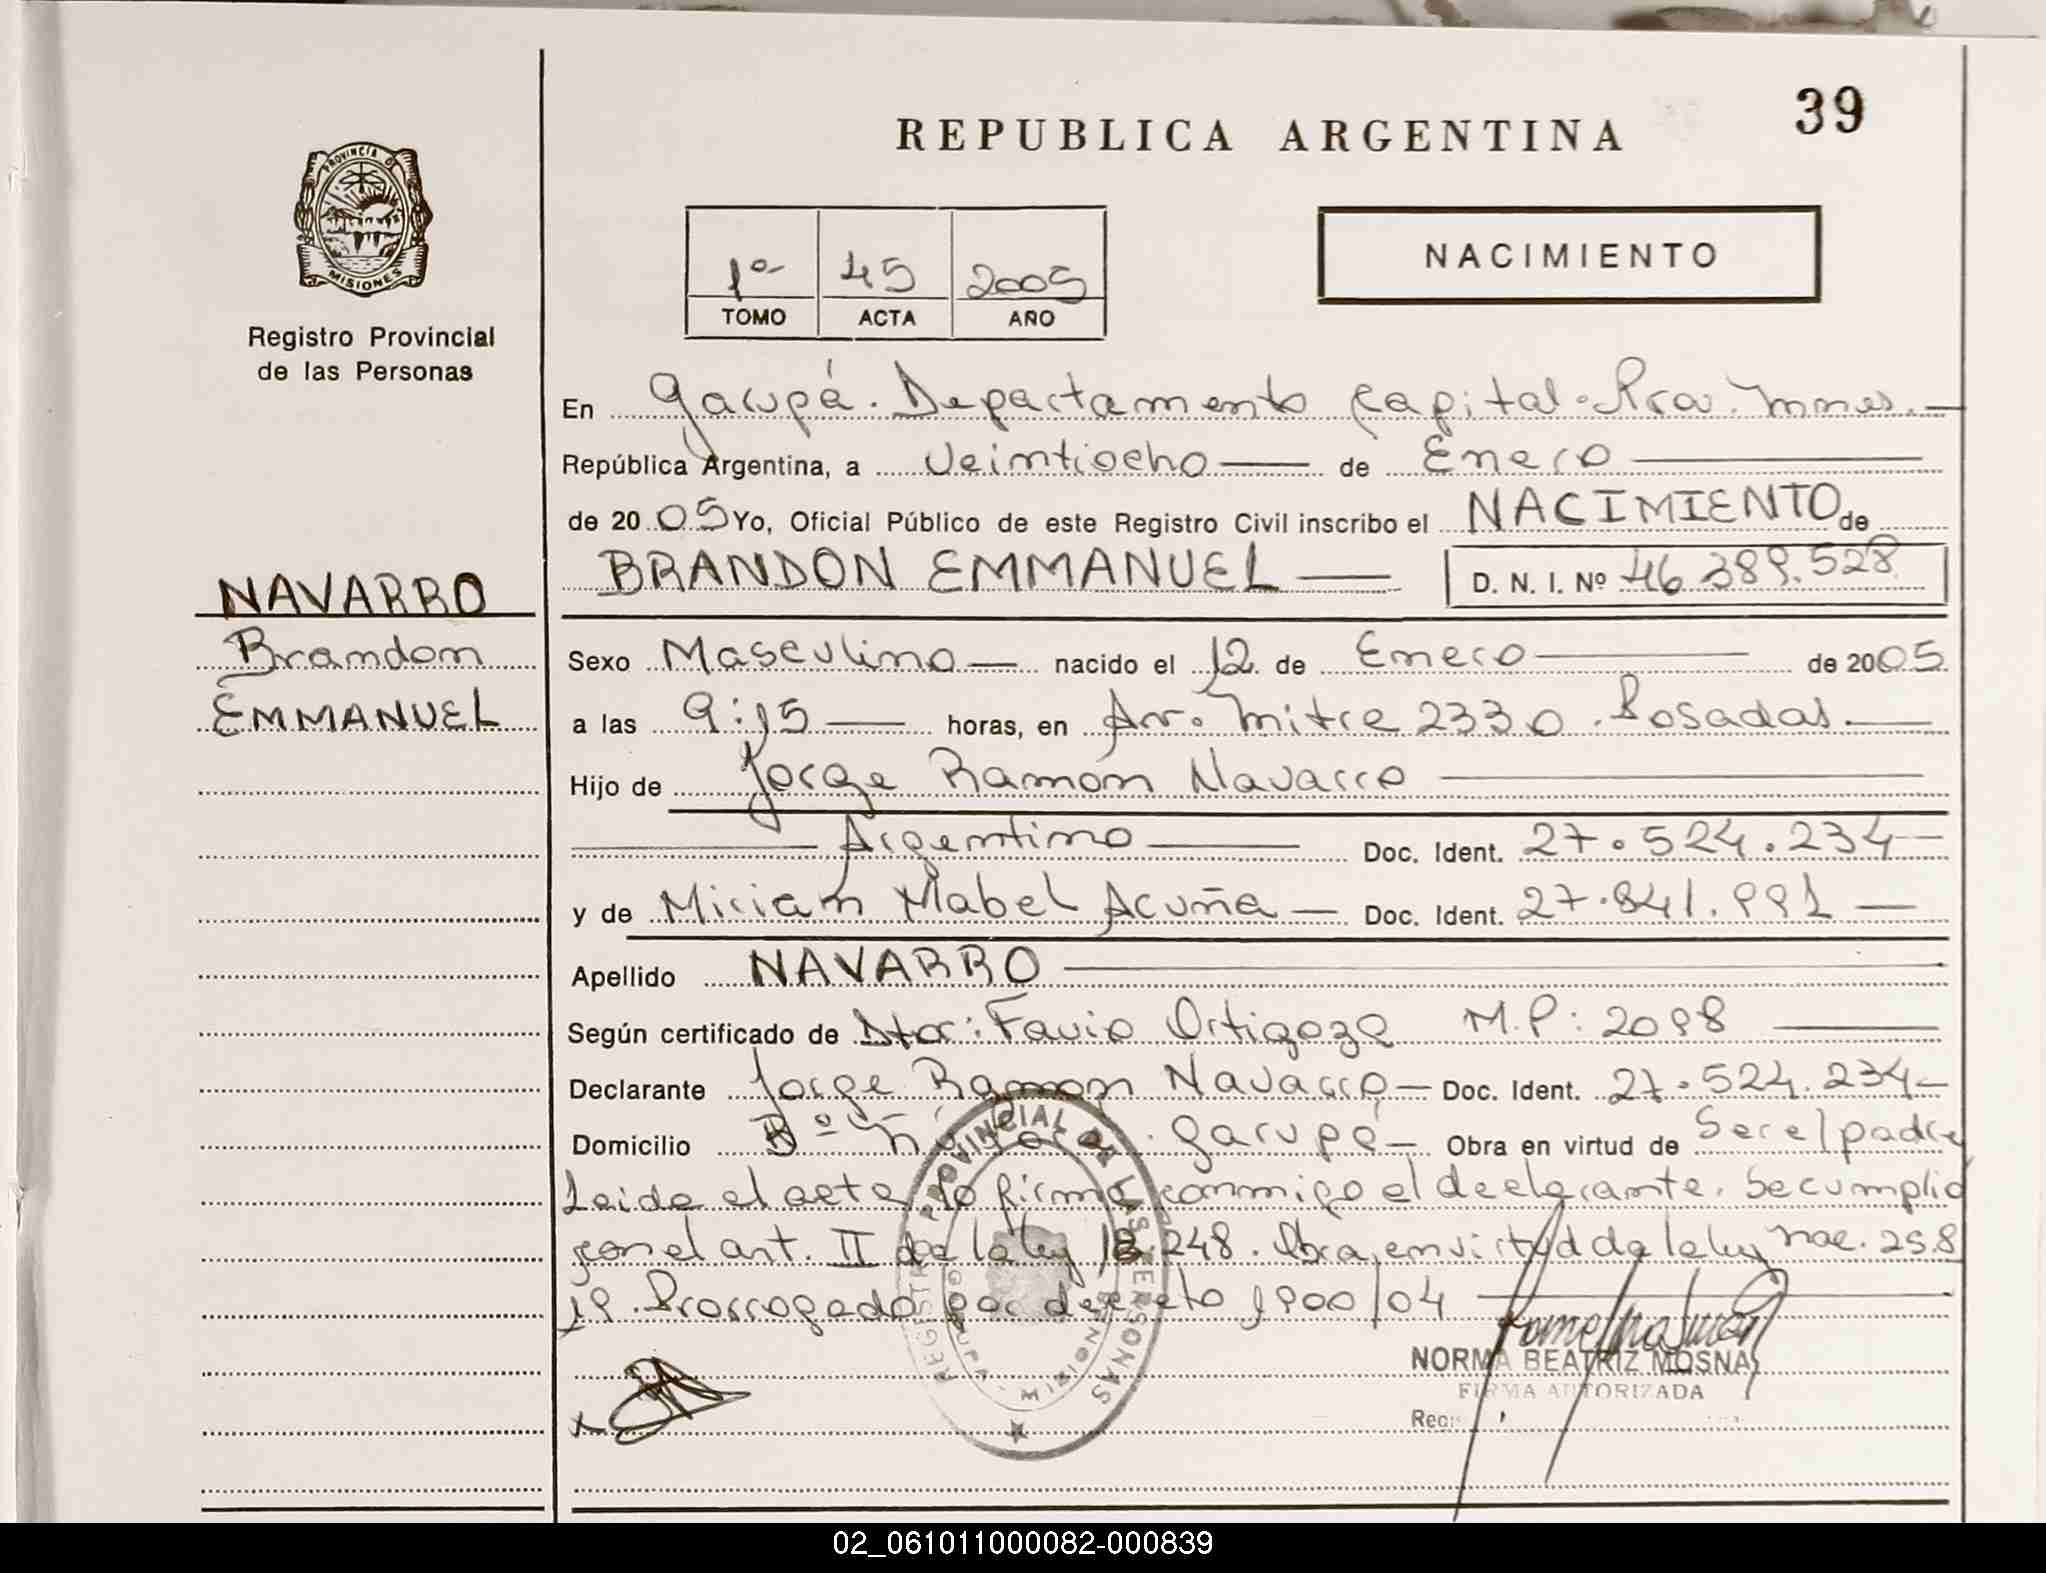 39
REPUBLICA ARGENTINA
PROVINCIA DE
MISIONES
NACIMIENTO
1º 45 2005
TOMO ACTA AÑO
Registro Provincial
de las Personas
En Garupá. Departamento Capital. Pcia. Mnes.
República Argentina, a Veintiocho de Enero
de 2005 Yo, Oficial Público de este Registro Civil inscribo el NACIMIENTO de
BRANDON EMMANUEL D. N. I. Nº 46.389.528
NAVARRO
Brandon
EMMANUEL
Sexo Masculino nacido el 12 de Enero de 2005
a las 9:15 horas, en Av. Mitre 2330. Posadas.
Hijo de Jorge Ramón Navarro
Argentino Doc. Ident. 27.524.234
y de Miriam Mabel Acuña Doc. Ident. 27.841.991
Apellido NAVARRO
Según certificado de Dtor: Favio Ortigoza M.P: 2098
Declarante Jorge Ramón Navarro Doc. Ident. 27.524.234
Domicilio Bº Garupá Obra en virtud de Ser el padre
Leida el acta la firma conmigo el declarante. Se cumplió
con el art. II de la ley 18.248. Obra en virtud de la ley nac. 25.8
19. Prorrogado por decreto 1900/04
REGISTRO PROVINCIAL DE LAS PERSONAS
NORMA BEATRIZ MOSNA
FIRMA AUTORIZADA
02_061011000082-000839